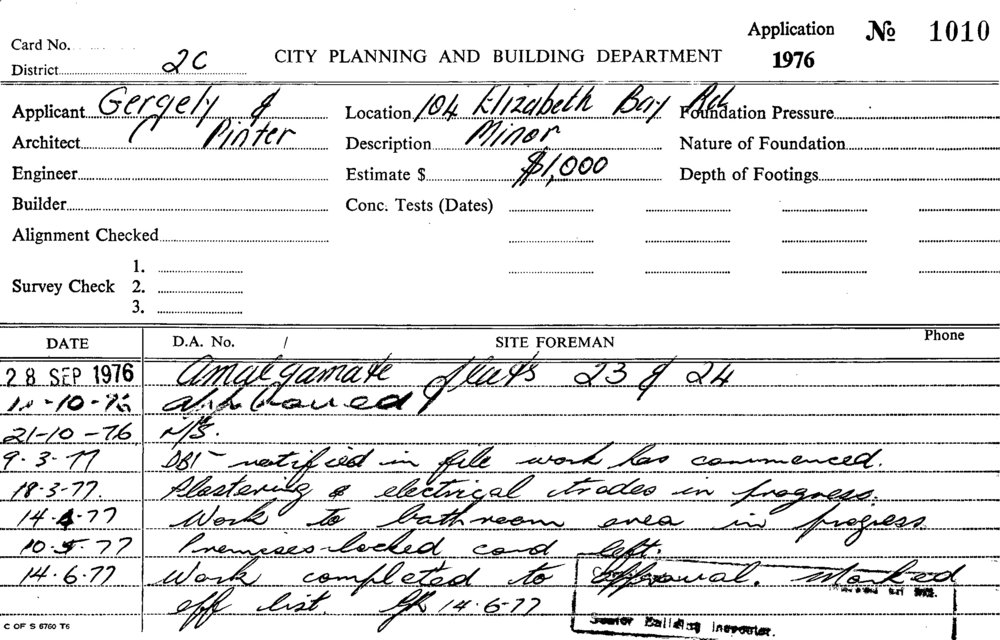 Application № 1010
Card No.
1976
District 2C
CITY PLANNING AND BUILDING DEPARTMENT
Applicant Gergely &
Location 104 Elizabeth Bay Rd
Foundation Pressure
Architect Pinter
Description Minor
Nature of Foundation
Engineer
Estimate $ $1,000
Depth of Footings
Builder
Conc. Tests (Dates)
Alignment Checked
1.
Survey Check 2.
3.
DATE D.A. No. / SITE FOREMAN Phone
28 SEP 1976 Amalgamate flats 23 & 24
-10-76 approved
21-10-76 N/S.
9.3.77 DBI - notified in file work has commenced.
18-3-77. Plastering & electrical trades in progress.
14.4.77 Work to bathroom area in progress
10.5.77 Premises locked card left.
14.6.77 Work completed to approval. Marked
off list. 14-6-77
Senior Building Inspector.
C OF S 6760 T6